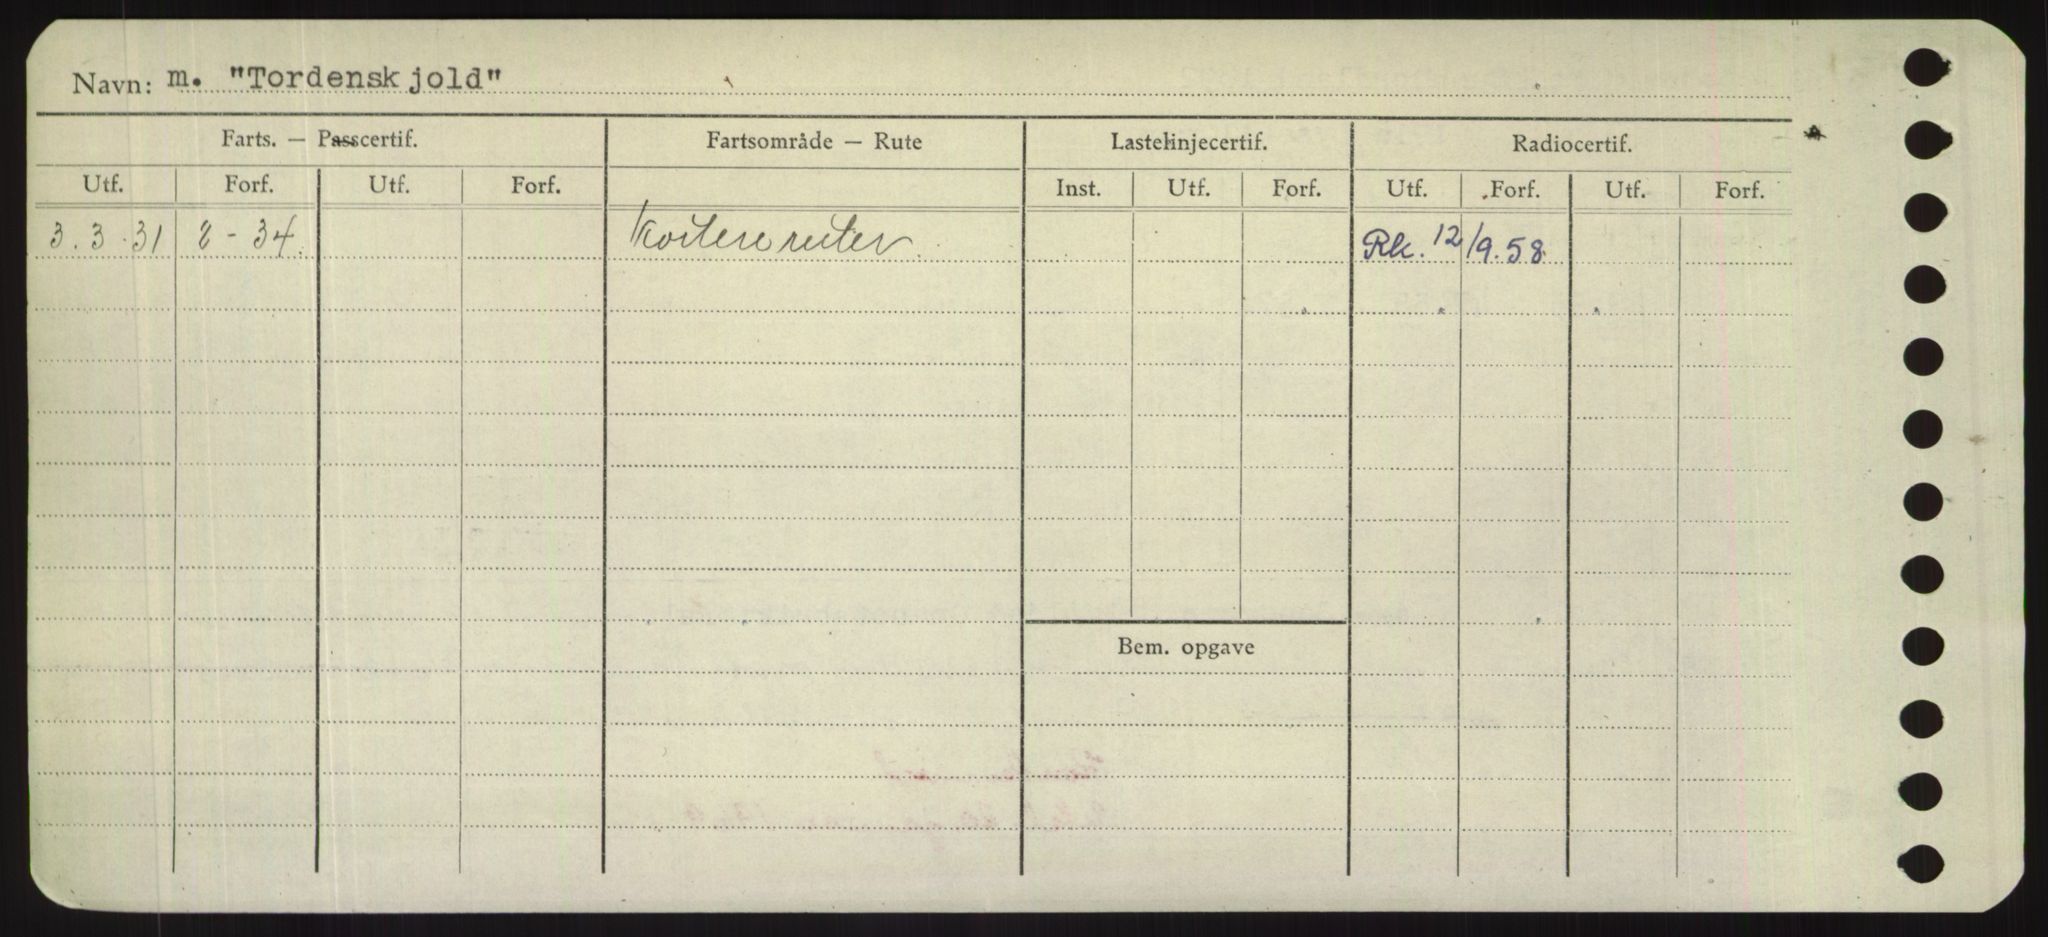 Navn: m. "Tordenskjold"
Farts. — Passcertif. Fartsområde — Rute Lastelinjecertif. Radiocertif.
Utf. Forf. Utf. Forf. Inst. Utf. Forf. Utf. Forf. Utf. Forf.
3.3.31 2-34 Kortere ruter. Rk. 12/9.58.
Bem. opgave